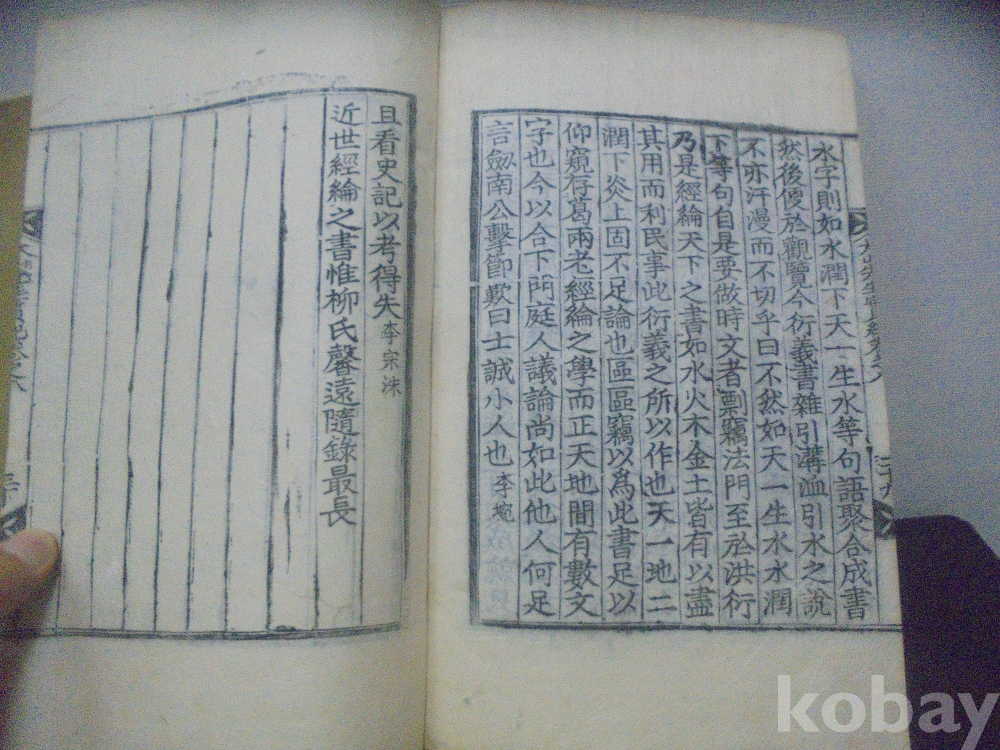 水字則如水潤下天一生水等句語聚合成書
然後便於觀覽今衍義書雜引溝洫引水之說
不亦汗漫而不切乎曰不然如天一生水水潤
下等句自是要做時文者剽竊法門至於洪衍
乃是經綸天下之書如水火木金土皆有以盡
其用而利民事此衍義之所以作也天一地二
潤下炎上固不足論也區區竊以為此書足以
仰窺存葛兩老經綸之學而正天地間有數文
字也今以合下門庭人議論尚如此他人何足
言劒南公擊節歎曰士誠小人也李㙖
且看史記以考得失李宗洙
近世經綸之書惟柳氏馨遠隨錄最長
kobay